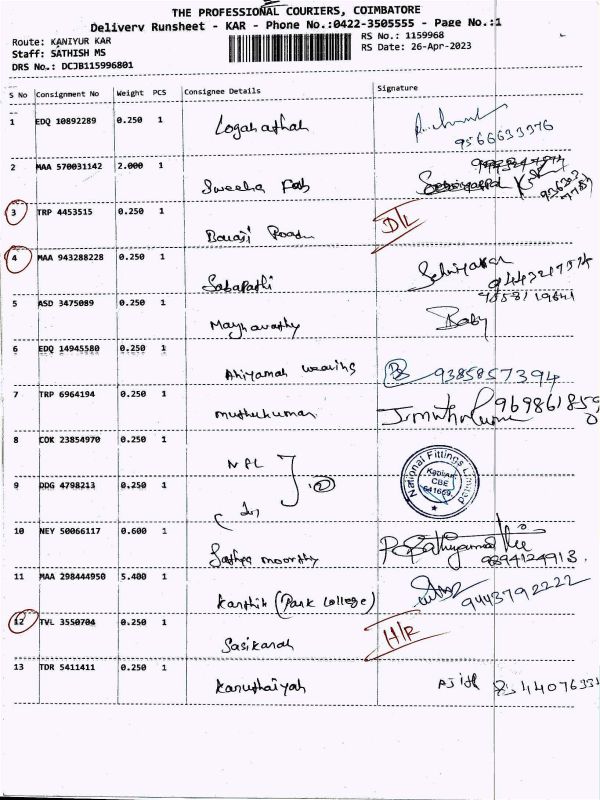 THE PROFESSIONAL COURIERS, COIMBATORE
Delivery Runsheet - KAR - Phone No.:0422-3505555 - Page No.:1
Route: KANIYUR KAR
Staff: SATHISH MS
DRS No.: DCJB115996801
RS No.: 1159968
RS Date: 26-Apr-2023
S No Consignment No Weight PCS Consignee Details Signature
1 EDQ 10892289 0.250 1
Loganathan
9566633376
2 MAA 570031142 2.000 1
Sweelha Fab
3 TRP 4453515 0.250 1
D/L
4 MAA 943288228 0.250 1
Sabapathi
5 ASD 3475089 0.250 1
Baby
6 EDQ 14945580 0.250 1
9385857394
7 TRP 6964194 0.250 1
muthukumar
9698618590
8 COK 23854970 0.250 1
NFL
National Fittings Limited
CBE
641659
9 DDG 4798213 0.250 1
10 NEY 50066117 0.600 1
Sathya moorthy
9894124913
11 MAA 298444950 5.400 1
Karthik (Park College)
9443792222
12 TVL 3550704 0.250 1
H/R
Sasikaran
13 TDR 5411411 0.250 1
Ajith